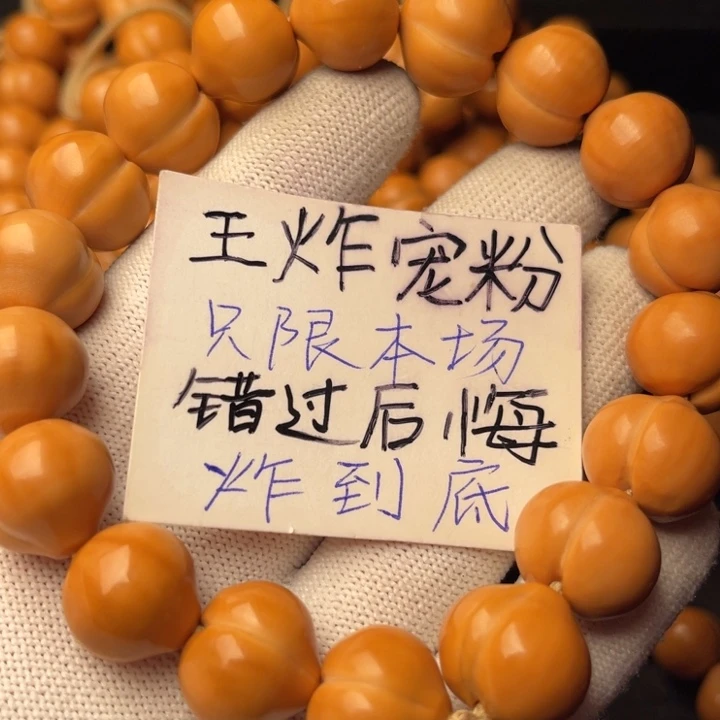 王炸宠粉
只限本场
错过后悔
炸到底